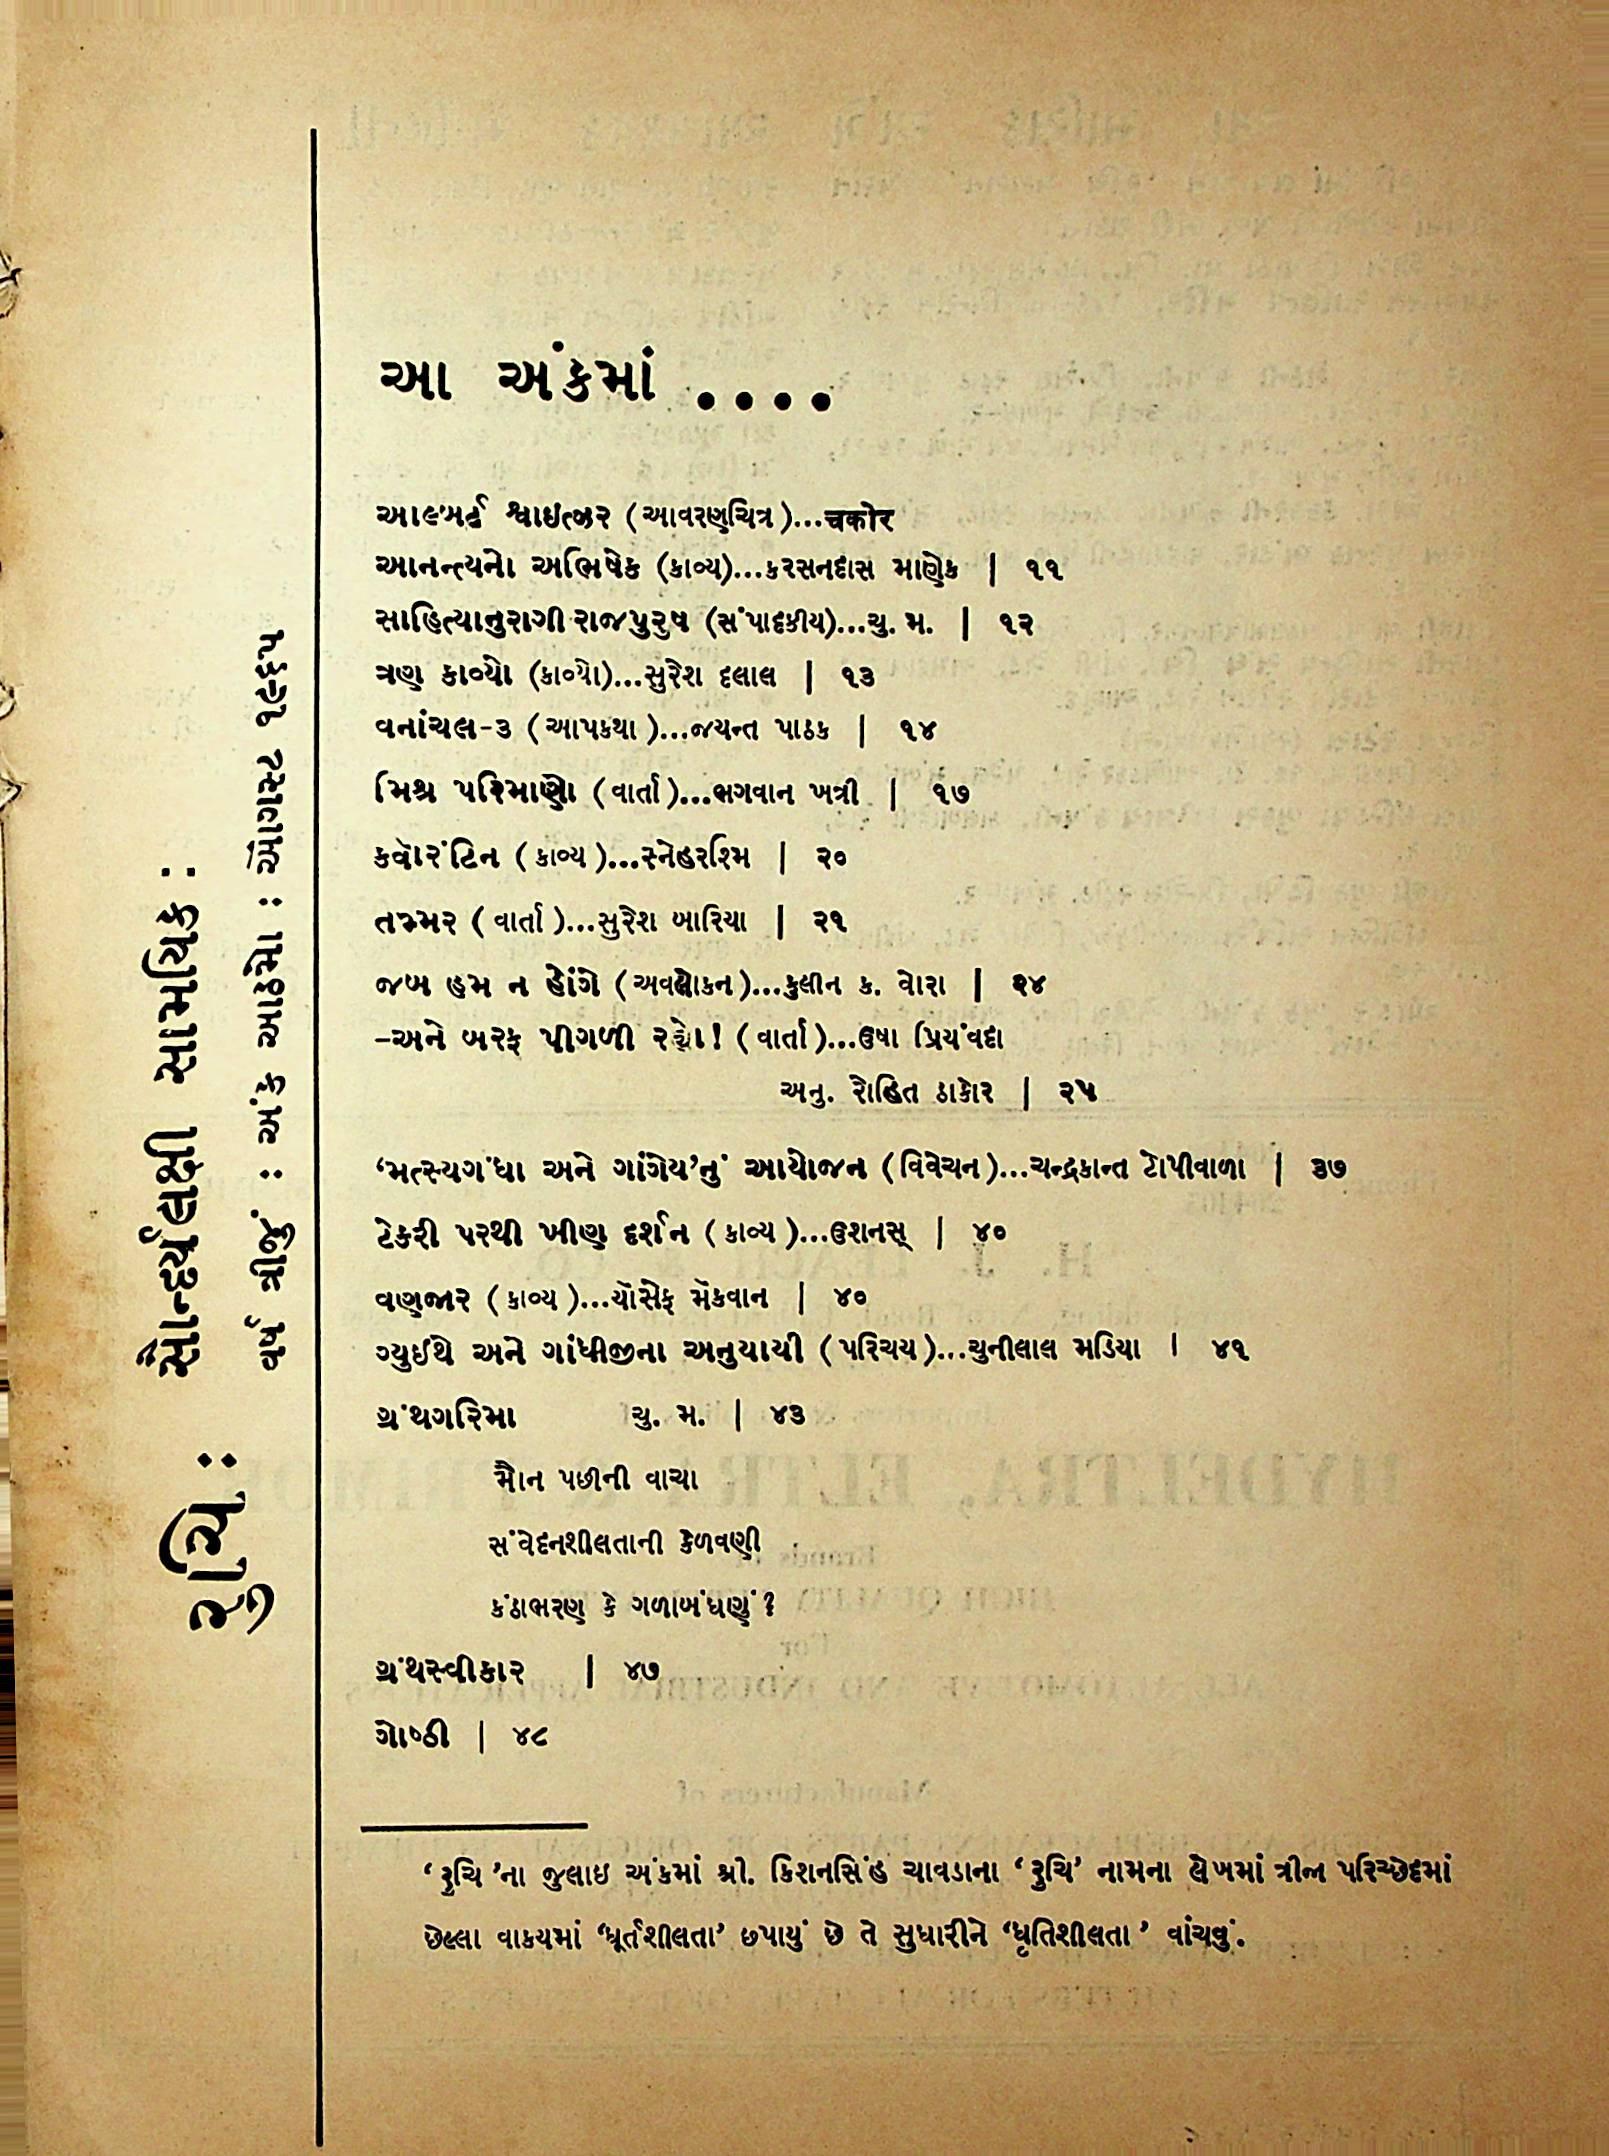 રુચિ : સૌન્દર્યલક્ષી સામયિક :
વર્ષ ત્રીજું : અંક આઠમો : ઑગસ્ટ ૧૯૬૫
આ અંકમાં ....
આલ્બર્ટ શ્વાઇત્ઝર (આવરણચિત્ર)...चकोर
આનન્ત્યનો અભિષેક (કાવ્ય)...કરસનદાસ માણેક | ૧૧
સાહિત્યાનુરાગી રાજપુરુષ (સંપાદકીય)...ચુ. મ. | ૧૨
ત્રણ કાવ્યો (કાવ્યો)...સુરેશ દલાલ | ૧૩
વનાંચલ-૩ (આપકથા)...જયન્ત પાઠક | ૧૪
મિશ્ર પરિમાણો (વાર્તા)...ભગવાન ખત્રી | ૧૭
કવૉરંટિન (કાવ્ય)...સ્નેહરશ્મિ | ૨૦
તમ્મર (વાર્તા)...સુરેશ બારિયા | ૨૧
જબ હમ ન હોંગે (અવલોકન)...કુલીન ક. વોરા | ૨૪
-અને બરફ પીગળી રહ્યો! (વાર્તા)...ઉષા પ્રિયંવદા
અનુ. રોહિત ઠાકોર | ૨૫
‘મત્સ્યગંધા અને ગાંગેય’નું આયોજન (વિવેચન)...ચન્દ્રકાન્ત ટોપીવાળા | ૩૭
ટેકરી પરથી ખીણ દર્શન (કાવ્ય)...ઉશનસ્ | ૪૦
વણજાર (કાવ્ય)...યૉસેફ મૅકવાન | ૪૦
ગ્યુઈથે અને ગાંધીજીના અનુયાયી (પરિચય)...ચુનીલાલ મડિયા | ૪૧
ગ્રંથગરિમા ચુ. મ. | ૪૩
મૌન પછીની વાચા
સંવેદનશીલતાની કેળવણી
કંઠાભરણ કે ગળાબંધણું?
ગ્રંથસ્વીકાર | ૪૭
ગોષ્ઠી | ૪૮
‘રુચિ’ના જુલાઇ અંકમાં શ્રી. કિશનસિંહ ચાવડાના ‘રુચિ’ નામના લેખમાં ત્રીજા પરિચ્છેદમાં
છેલ્લા વાકયમાં ‘ધૂર્તશીલતા’ છપાયું છે તે સુધારીને ‘ધૃતિશીલતા’ વાંચવું.